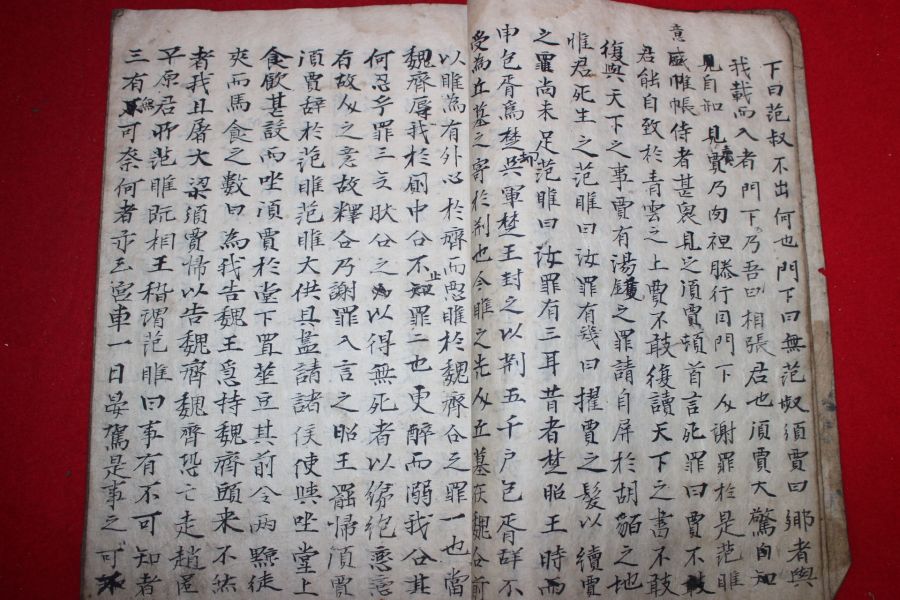 下曰范叔不出何也門下曰無范叔須賈曰鄉者與
我載而入者門下乃吾曰相張君也須賈大驚自知
見自知見賣乃肉袒膝行因門下人謝罪於是范雎
意盛帷帳侍者甚裏見之須賈頓首言死罪曰賈不敢
君能自致於青雲之上賈不敢復讀天下之書不敢
復與天下之事賈有湯鑊之罪請自屏於胡貉之地
惟君死生之范雎曰汝罪有幾曰擢賈之髮以續賈
之罪尚未足范雎曰汝罪有三耳昔者楚昭王時而
申包胥爲楚却吳軍楚王封之以荆五千户包胥辞不
受為丘墓之寄於荆也今雎之先人丘墓在魏公前
以雎為有外心於齊而惡雎於魏齊公之罪一也當
魏齊辱我於廁中公不止罪二也更醉而溺我公其
何忍乎罪三矣肰公之以得無死者以綈袍戀戀
有故人之意故釋公乃謝罪入言之昭王罷歸須賈
須賈辞於范雎范雎大供具盡請諸侯使與坐堂上
食飮甚設而坐須賈於堂下置莝豆其前令两黥徒
夾而馬食之數曰為我告魏王急持魏齊頭来不然
者我且屠大梁須賈歸以告魏齊魏齊恐亡走趙匿
平原君所范雎旣相王稽謂范雎曰事有不可知者
三有無可奈何者亦三宮車一日晏駕是事之可